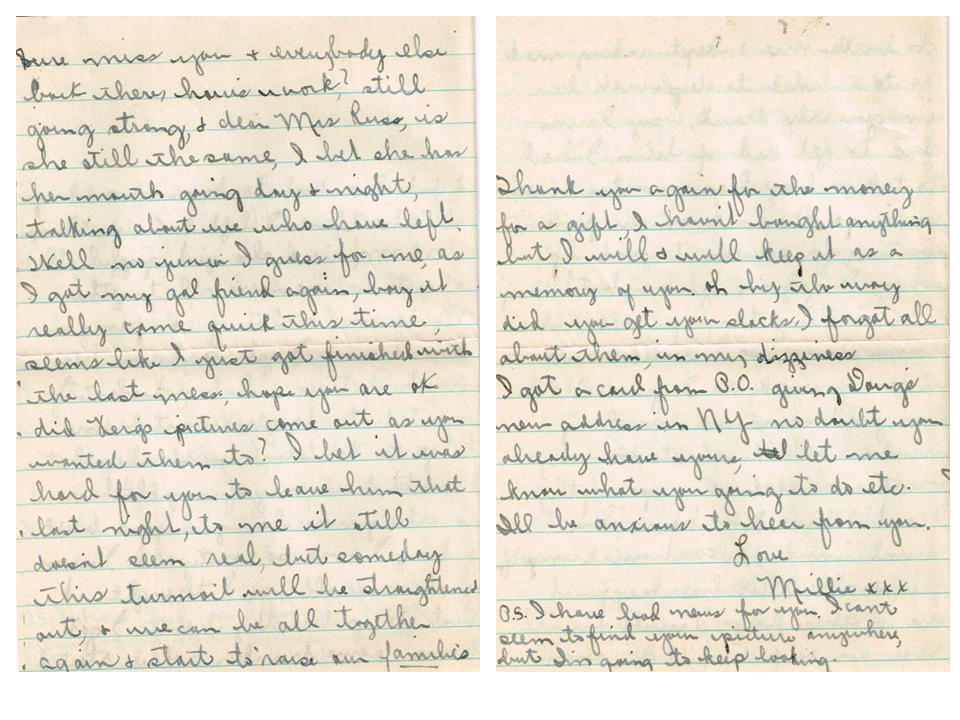 Sure miss you + everybody else
back there, how's work? still
going strong & dear Mrs Russ, is
she still the same, I bet she has
her mouth going day & night,
talking about we who have left.
Well no junior I guess for me, as
I got my gal friend again, boy it
really came quick this time,
seems like I just got finished with
the last mess, hope you are ok
did pictures come out as you
wanted them to? I bet it was
hard for you to leave him that
last night, to me it still
doesn't seem real, but someday
this turmoil will be straightened
out, & we can be all togther
again & start to raise our families
Thank you again for the money
for a gift, I havn't bought anything
but I will & will keep it as a
memory of you. oh by the way
did you get your slacks, I forgot all
about them, in my dizziness
I got a card from P.O. giving Doug's
new address in NY no doubt you
already have yours, let me
know what you going to do etc.
I'll be anxious to hear from you.
Love
Millie xxx
P.S. I have bad news for you I cant
seem to find your picture anywhere,
but I'm going to keep looking.